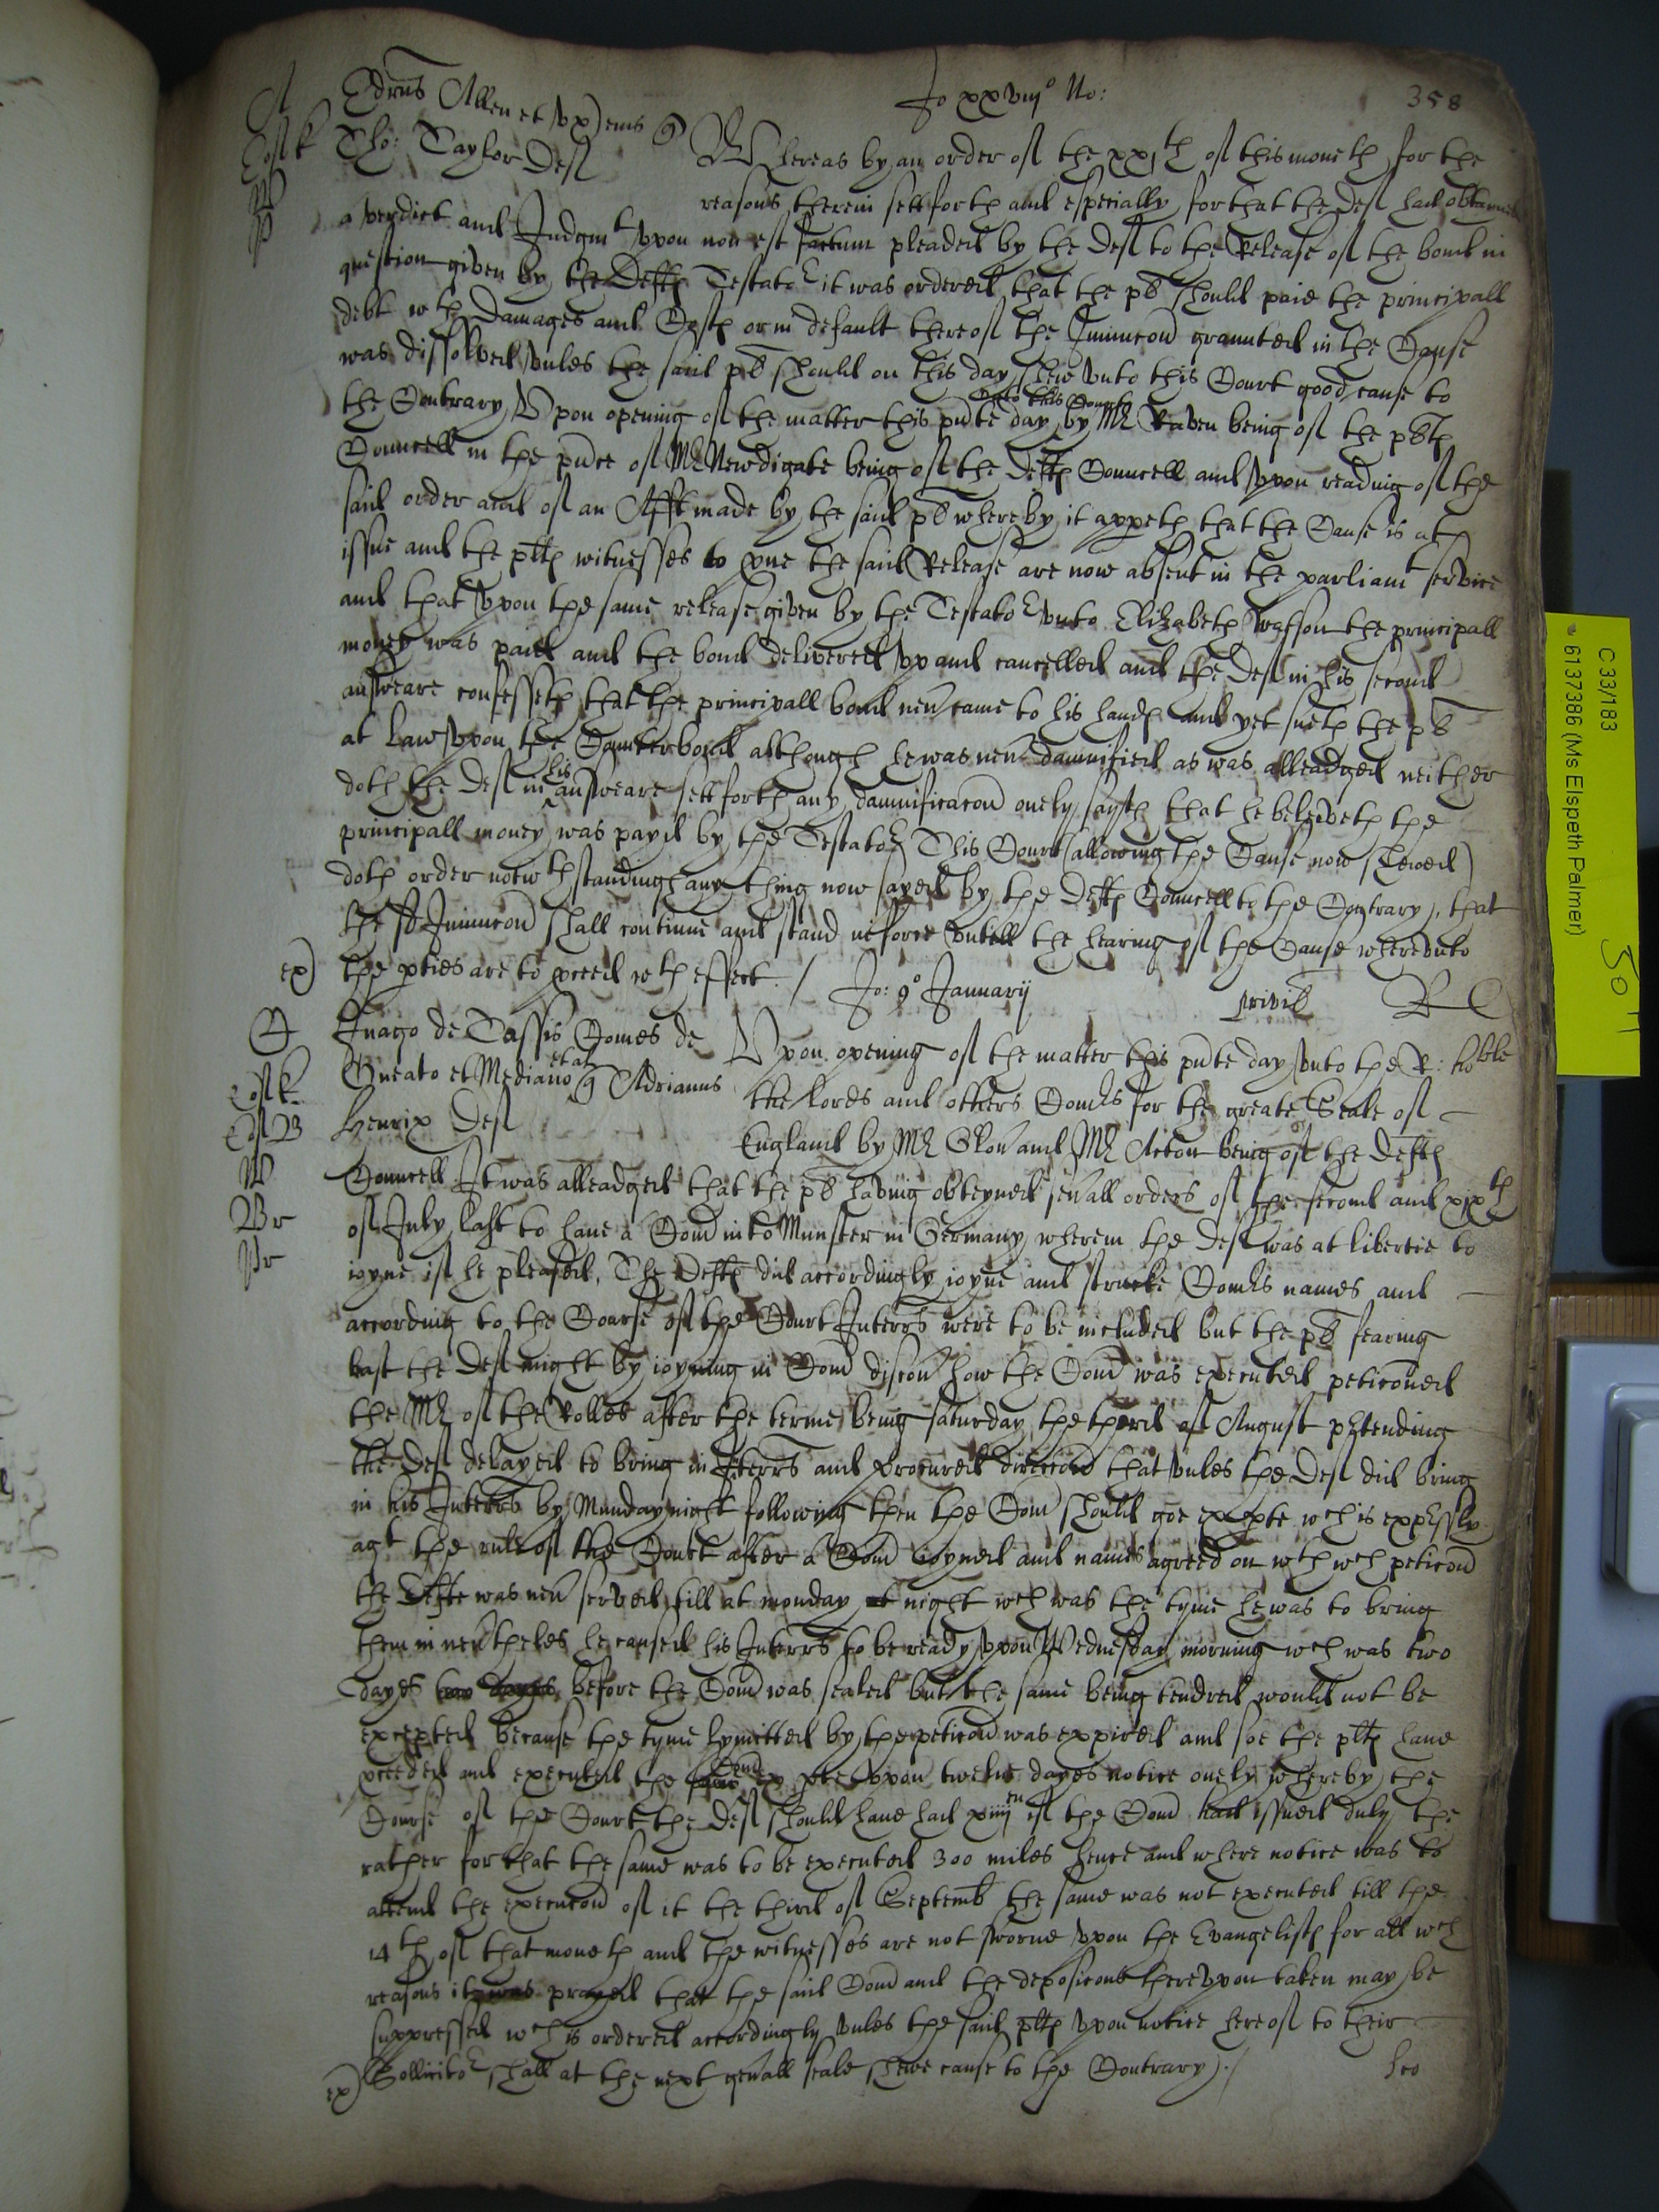 Jo xxviij° No:
358
Edrus Allen et ux) ems
Tho: Taylor Deft
Whereas by an order of the xxjth of this moneth for the
reasons therein settforth and especially for that the Deft had obtained
a verdict and Judgmt vpon non est factum pleaded by the Deft to the Release of the bond in
question given by the Defts Testator it was ordered that the plt should paie the principall
debt wth Damages and Costs or in default thereof the Iniuncon graunted in the Cause
was dissolved vnles the said plt should on this day shew vnto this Court good cause to
the Contrary Vpon opening of the matter this pnte day vnto this Court by Mr Raven being of the plts
Councell in the pnce of Mr Newdigate being of the Defts Councell and vpon reading of the
said order and of an Afft made by the said plt whereby it appeth that the Cause is att
issue and the plts witnesses to pve the said Release are now absent in the parliamt service
and that vpon the same release given by the Testator vnto Elizabeth Watson the principall
money was paid and the bond delivered vp and cancelled and the Deft in his second
answeare confesseth that the principall bond nev came to his hands and yet sueth the plt
at Law vpon the Counterbond although he was nev damnified as was alleadged neither
doth the Deft in his answeare settforth any damnificacon onely sayth that he beleiveth the
principall money was payd by the Testator This Court (allowing the Cause now shewed)
doth order notwthstanding any thing now sayed by the Defts Councell to the Contrary, that
the sd Iniuncon shall continue and stand in force vntill the hearing of the Cause wherevnto
ex) the pties are to pceed wth effect /
Jo: 9° Januarij
Jnago de Tassis Comes de
Gneato et Mediano et al Adrianus
Henrix Deft
Vpon opening of the matter this pnte day vnto the R: hoble
the Lords and others Comrs for the greate Seale of
England by Mr Glov and Mr Acton being of the Defts
Councell It was alleadged that the plt having obteyned sevall orders of the second and xixth
of July last to have a Com into Munster in Germany wherein the Deft was at libertie to
ioyne if he pleased, The Defts did accordingly ioyne and strucke Comrs names and
according to the Course of the Court Interrs were to be included but the plt fearing
last the Deft might by ioyning in Com discov how the Com was executed peticoned
the Mr of the Rolles after the terme being saturday the third of August ptending
the Deft delayed to bring in Interrs and procured direccon that vnles the Deft did bring
in his Interrs by Munday night following then the Com should goe ex pte wch is expssly
agt the rule of the Court after a Com ioyned and names agreed on wth wch peticon
the Defte was nev served till at monday at night wch was the tyme he was to bring
them in nevtheles he caused his Interrs to be ready vpon Wednesday morning wch was two
dayes two dayes before the Com was sealed but the same being tendred would not be
excepted because the tyme lymitted by the peticon was expired and soe the plts have
pceeded and executed the same Com ex pte vpon twelve dayes notice onely whereby the
Course of the Court the Deft should have had xiiijen if the Com had issued duly the
rather for that the same was to be executed 300 miles hence and where notice was to
attend the execucon of it the third of Septemb the same was not executed till the
14th of that moneth and the witnesses are not sworne vpon the Evangelists for all wch
reasons it was prayed that the said Com and the deposicons therevpon taken may be
suppressed wch is ordered accordingly vnles the said plts vpon notice hereof to their
ex) Sollicitor shall at the next genall seale shewe cause to the Contrary). /
C 33/183
6137386 (Ms Elspeth Palmer)